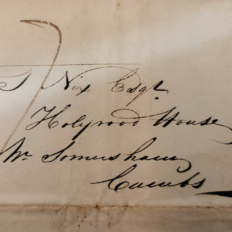 S Nix Esqr.
Holyrood House
Nr Somersham
Cambs